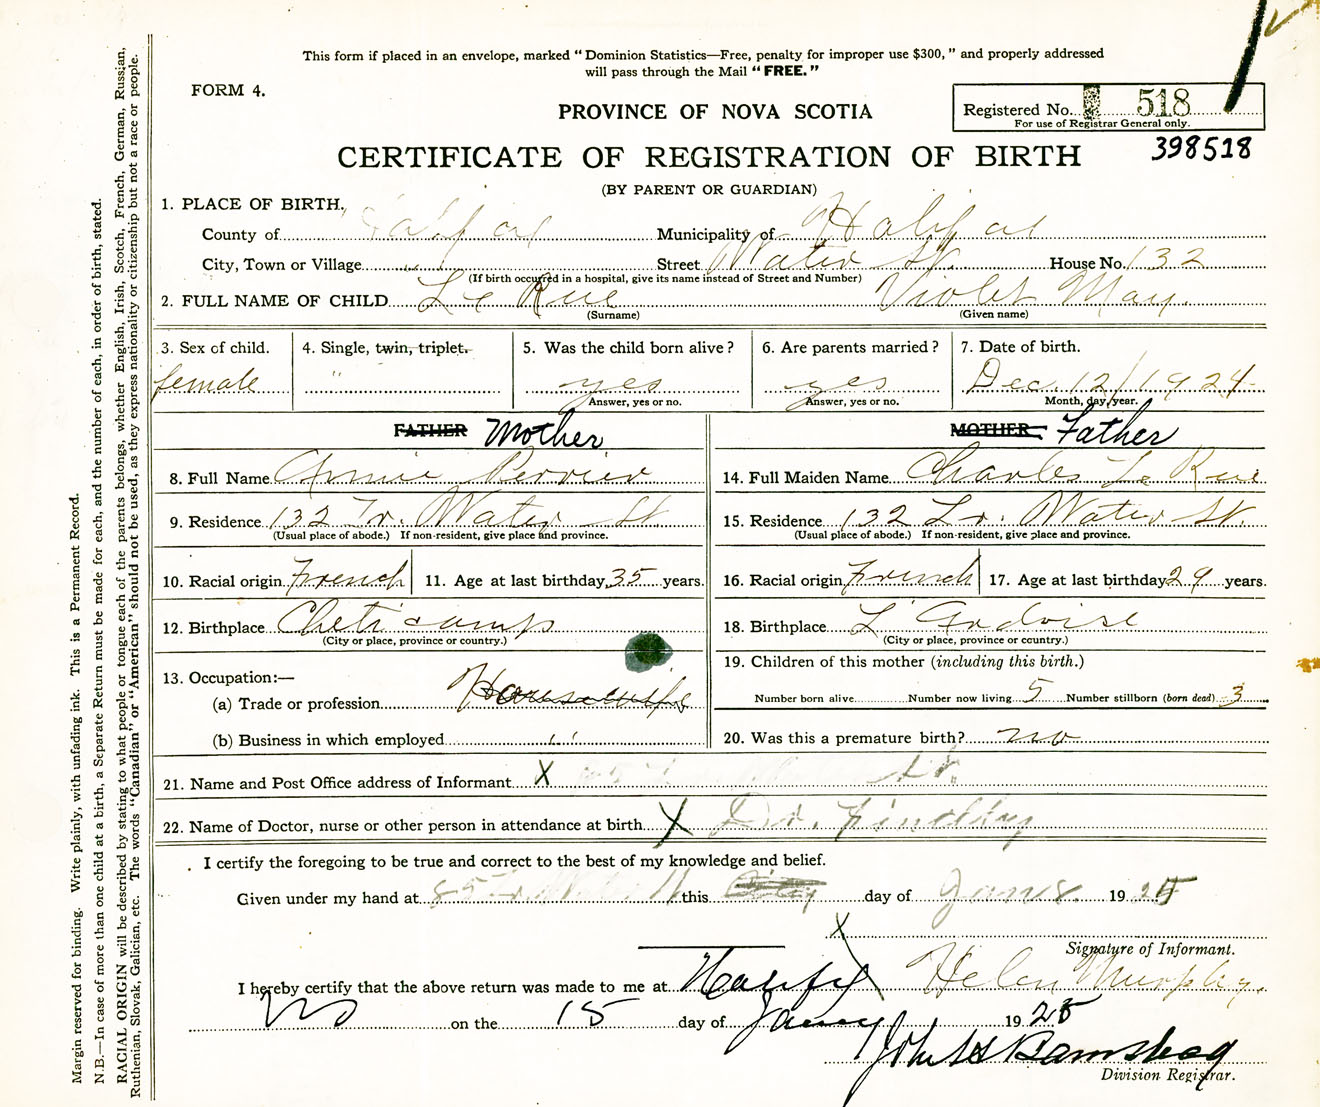 This form if placed in an envelope, marked "Dominion Statistics—Free, penalty for improper use $300," and properly addressed
will pass through the Mail "FREE."
FORM 4.
PROVINCE OF NOVA SCOTIA
Registered No. 518
For use of Registrar General only.
398518
CERTIFICATE OF REGISTRATION OF BIRTH
(BY PARENT OR GUARDIAN)
1. PLACE OF BIRTH.
County of Halifax Municipality of Halifax
City, Town or Village " Street Water St. House No. 132
(If birth occurred in a hospital, give its name instead of Street and Number)
2. FULL NAME OF CHILD Le Rue Violet May.
(Surname) (Given name)
3. Sex of child. 4. Single, twin, triplet. 5. Was the child born alive? 6. Are parents married? 7. Date of birth.
female " yes yes Dec. 12/1924
Answer, yes or no. Answer, yes or no. Month, day, year.
FATHER Mother MOTHER Father
8. Full Name Annie Perrier 14. Full Maiden Name Charles Le Rue
9. Residence 132 Water St 15. Residence 132 Lr. Water St.
(Usual place of abode.) If non-resident, give place and province. (Usual place of abode.) If non-resident, give place and province.
10. Racial origin French 11. Age at last birthday 35 years. 16. Racial origin French 17. Age at last birthday 29 years.
12. Birthplace Cheticamp 18. Birthplace L'Ardoise
(City or place, province or country.) (City or place, province or country.)
13. Occupation:— 19. Children of this mother (including this birth.)
(a) Trade or profession Housewife Number born alive Number now living 5 Number stillborn (born dead) 3
(b) Business in which employed " 20. Was this a premature birth? no
21. Name and Post Office address of Informant X St.
22. Name of Doctor, nurse or other person in attendance at birth X Dr.
I certify the foregoing to be true and correct to the best of my knowledge and belief.
Given under my hand at 85 Lr. Water St this day of Jan 8. 1925
X
Signature of Informant.
I hereby certify that the above return was made to me at Halifax Helen Murphy.
NS on the 15 day of Jany 1925
John H Barnstead
Division Registrar.
Margin reserved for binding. Write plainly, with unfading ink. This is a Permanent Record.
N.B.—In case of more than one child at a birth, a Separate Return must be made for each, and the number of each, in order of birth, stated.
RACIAL ORIGIN will be described by stating to what people or tongue each of the parents belongs, whether English, Irish, Scotch, French, German, Russian,
Ruthenian, Slovak, Galician, etc. The words "Canadian" or "American" should not be used, as they express nationality or citizenship but not a race or people.